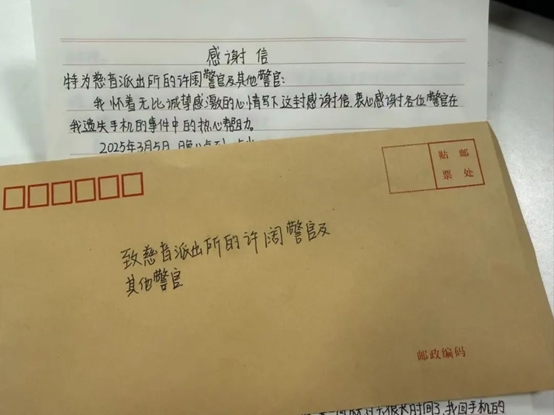 感谢信
特为慈者派出所的许阔警官及其他警官:
我怀着无比诚挚感激的心情写下这封感谢信，衷心感谢各位警官在
我遗失手机的事件中的热心帮助。
2025年3月5日
贴 邮
票 处
致慈者派出所的许阔警官及
其他警官
邮政编码
很长时间了,我回手机的